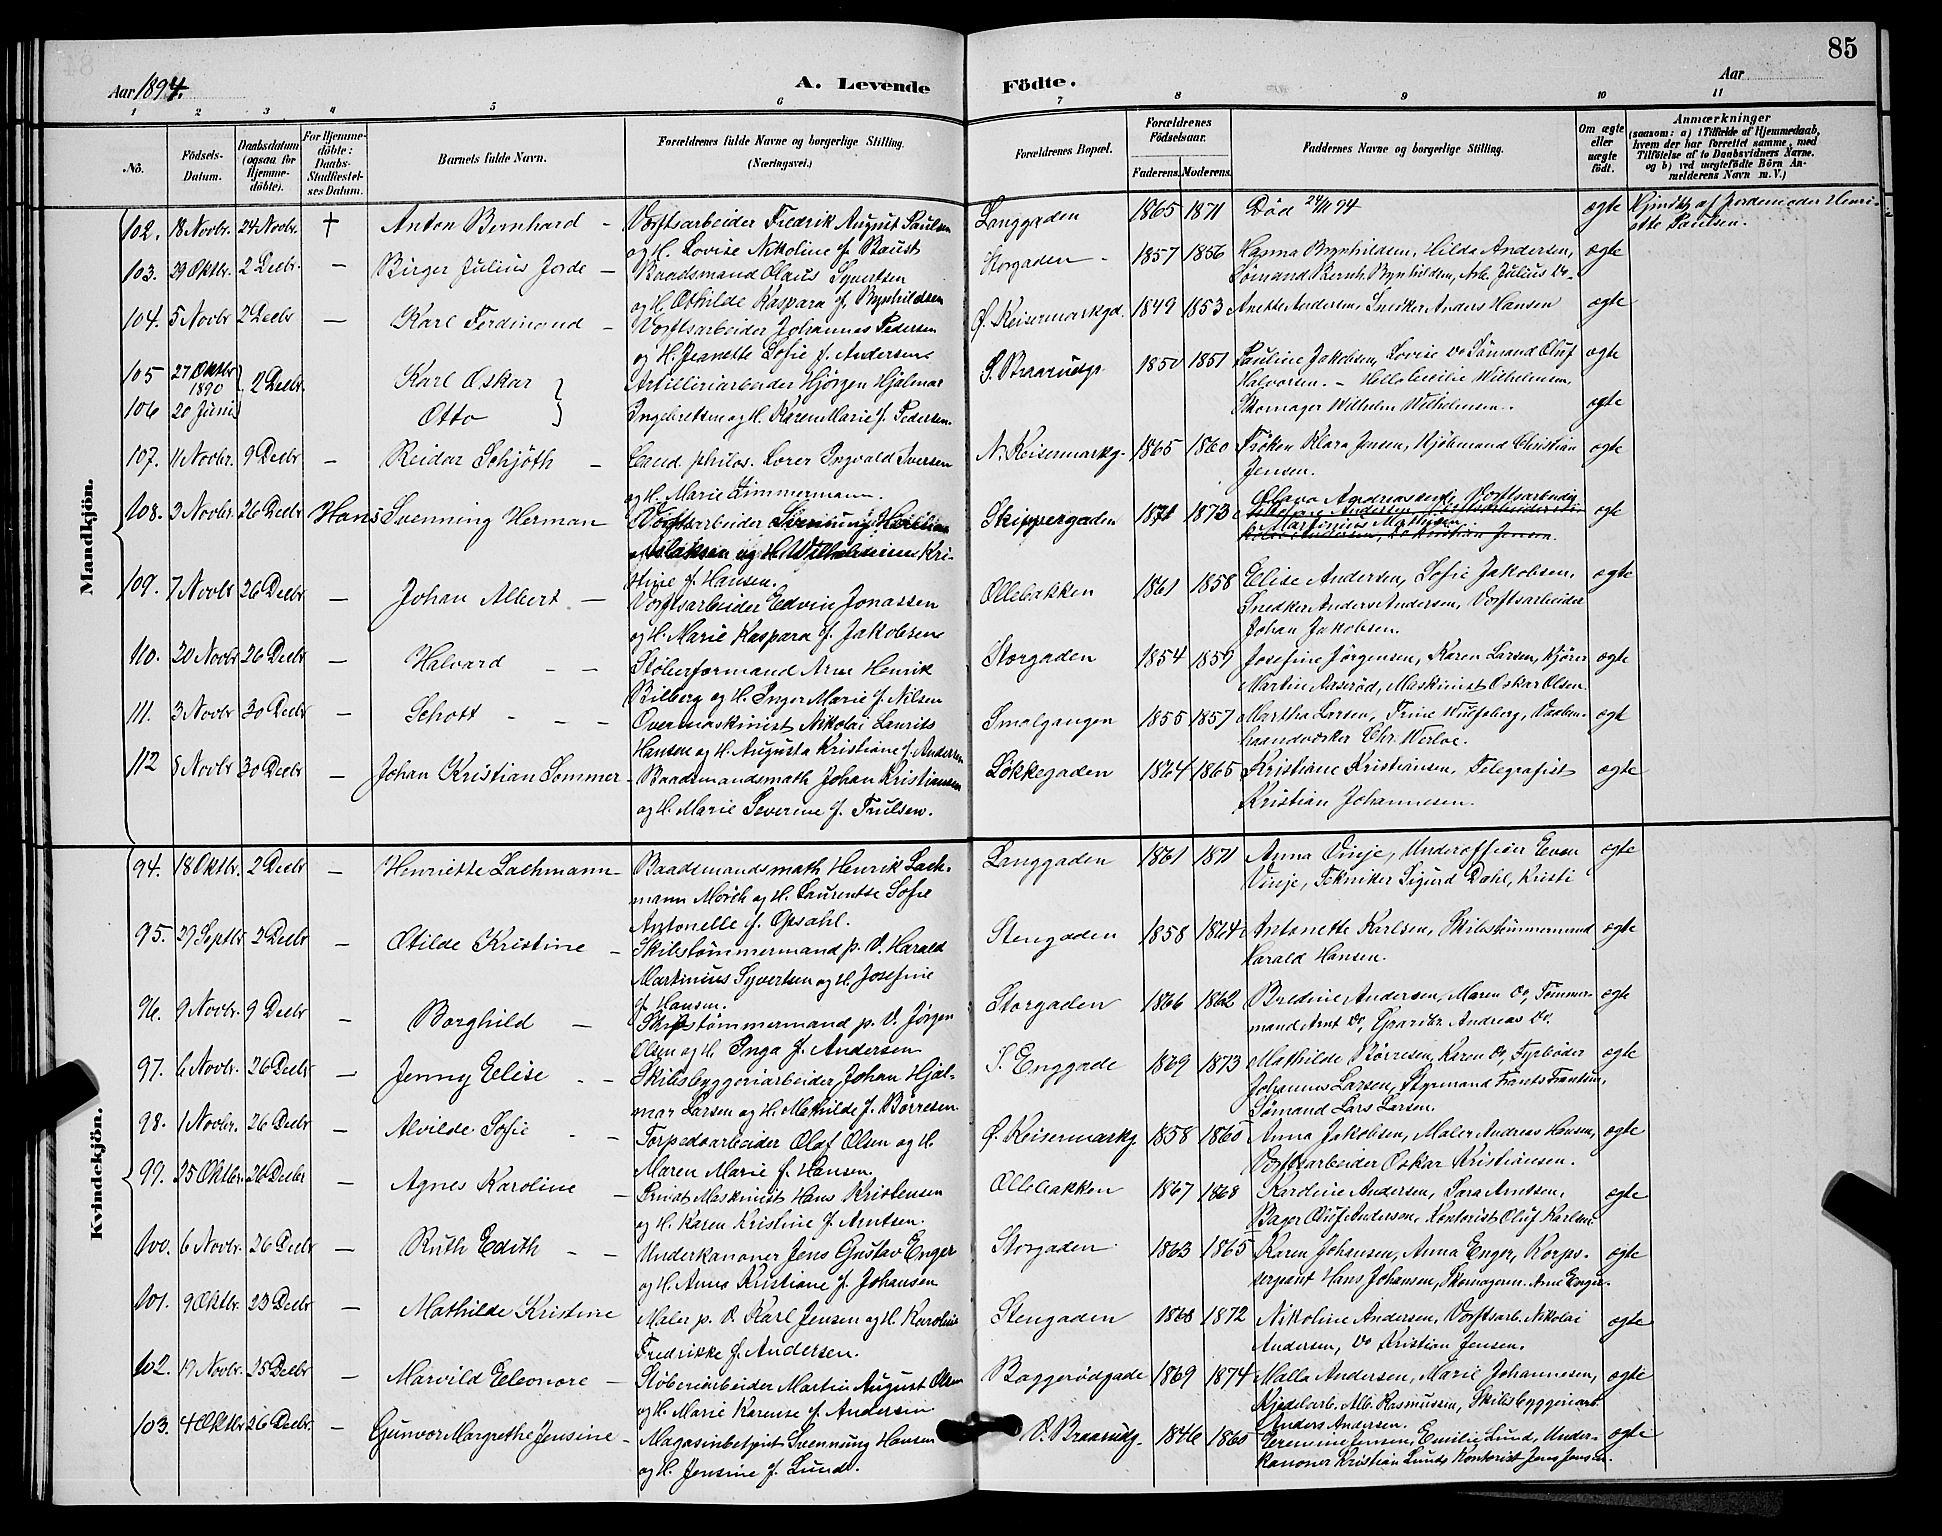 85
Aar 1894.
A. Levende
Födte.
Aar
1 2 3 4 5 6 7 8 9 10 11
No.
Födsels-Datum.
Daabsdatum (ogsaa for Hjemme-döbte).
For Hjemme-döbte: Daabs-Stadfæstel-ses Datum.
Barnets fulde Navn.
Forældrenes fulde Navne og borgerlige Stilling. (Næringsvei.)
Forældrenes Bopæl.
Forældrenes Födselsaar.
Faderens. Moderens.
Faddernes Navne og borgerlige Stilling.
Om ægte eller uægte födt.
Anmærkninger
(saasom: a) i Tilfælde af Hjemmedaab, hvem der har forrettet samme, med Tilföielse af to Daabsvidners Navne. og b) ved uægtefödte Börn An-melderens Navn m. V.)
Mandkjön.
102. 18 Novbr. 24 Novbr. † Anton Bernhard – Værftsarbeider Fredrik August Paulsen
og H. Lovise Nikoline f. Baust
Langgaden 1865 1871 Død 24/11 94 ægte Hjmdbt. af Jordemoder Henri-
ette Paulsen.
103. 29 Oktbr. 2 Decbr. – Birger Julius Jorde – Baadsmand Olaus Syvertsen
og H. Othilde Kaspara f. Bynhildsen
Storgaden 1857 1856 Hanna Bynhildsen, Hilda Andersen,
Sømand Bernh. Bynhildsen, Arb. Julius Do – ægte
104. 5 Novbr 2 Decbr – Karl Ferdinand – Værftsarbeider Johannes Pedersen
og H. Jeanette Sofie f. Andersen
Ø. Keisermarkgd. 1849 1853 Anette Andersen Snedker Anders Hansen ægte
105 27 Oktbr 1890 2 Decbr. Karl Oskar Artilleriarbeider Hjørgen Hjalmar
106 20 Juni Otto Ingebretsen og H. Karen Marie f. Pedersen.
S. Braarudgt. 1850 1851 Pauline Jakobsen, Lovise Do Sømand Oluf
Halvorsen. – Helle Cecilie Wilhelmsen,
Skomager Wilhelm Wilhelmsen. ægte ægte
107. 11 Novbr. 9 Decbr – Reidar Schjöth – Cand. philos. Lærer Ingvald Iversen
og H. Marie Zimmermann.
N. Keisermarkg. 1865 1860 Frøken Klara Jensen, Kjøbmand Christian
Jensen. ægte
108. 3 Novbr. 26 Decbr Hans Svenning Herman Værftsarbeider Svenning Herman
Isaksen og H. Wilhelmine Kri-
stine f. Hansen.
Skippergaden 1871 1873 Olava Andreassen, Værftsarbeidr.
Martinius Mathisen ægte
109. 7 Novbr 26 Decbr – Johan Albert – Værftsarbeider Edvin Jonassen
og H. Marie Kaspara f. Jakobsen
Ollebakken 1861 1858 Elise Andersen, Sofie Jakobsen,
Snedker Anders Andersen, Værftsarbeider
Johan Jakobsen. ægte
110. 20 Novbr 26 Decbr – Halvard – – Støberformand Arne Henrik
Bilberg og H. Inger Marie f. Nilsen
Storgaden 1854 1859 Josefine Jørgensen, Karen Larsen, Kjører
Martin Aaserød, Maskinist Oskar Olsen. ægte
111. 3 Novbr 30 Decbr – Schott – – – Overmaskinist Nikolai Laurits
Hansen og H. Augusta Kristiane f. Andersen
Smalgangen 1855 1857 Martha Larsen, Trine Wulfsberg, Vaaben-
haandværker Chr. Werløe. ægte
112 8 Novbr 30 Decbr – Johan Kristian Sommer – Baadsmandsmath Johan Kristiansen
og H. Marie Severine f. Trulsen.
Løkkegaden 1864 1865 Kristiane Kristiansen, Telegrafist
Kristian Johannesen. ægte
Kvindekjön.
94. 18 Oktbr. 2 Decbr – Henriette Lachmann – Baadsmandsmath Henrik Lach-
mann Mørch og H. Laurentse Sofie
Antonelle f. Opsahl.
Langgaden 1861 1871 Anna Vinje, Underofficier Even
Vinje, Tekniker Sigurd Dahl, Kristi ægte
95. 29 Septbr 2 Decbr – Otilde Kristine – Skibstømmermand p. V. Harald
Martinius Syvertsen og H. Josefine
f. Hansen.
Stengaden 1858 1864 Antonette Karlsen, Skibstømmermand
Harald Hansen. ægte
96. 9 Novbr. 9 Decbr – Borghild – Skibstømmermand p. V. Jørgen
Olsen og H. Inga f. Andersen
Storgaden 1866 1862 Bredine Andersen, Maren Do, Tømmer-
mand Arnt Do, Andreas Do. ægte
97. 6 Novbr. 26 Decbr – Jenny Elise – – Skibsbyggeriarbeider Johan Hjal-
mar Larsen og H. Mathilde f. Børresen
S. Enggade 1869 1873 Mathilde Børresen, Karen Do, Fyrbøder
Johannes Larsen, Styrmand Frants Frantsen,
Sømand Lars Larsen. ægte
98. 1 Novbr. 26 Decbr – Alvilde Sofie – – Torpedoarbeider Olaf Olsen og H.
Maren Marie f. Hansen.
Ø. Keisermarkg 1858 1860 Anna Jakobsen, Maler Andreas Hansen,
Værftsarbeider Oskar Kristiansen. ægte
99. 25 Oktbr. 26 Decbr – Agnes Karoline – Privat Maskinist Hans Kristensen
og H. Karen Kristine f. Arntsen.
Ollebakken 1867 1868 Karoline Andersen, Lara Arntsen,
Bager Oluf Andersen, Kontorist Oluf Karlsen ægte
100. 6 Novbr. 26 Decbr – Ruth Edith – – Underkanoner Jens Gustav Enger
og H. Anna Kristiane f. Johansen
Storgaden 1863 1865 Karen Johansen, Anna Enger, Korps-
serjeant Hans Johansen, Skomagerm. Arne Enger. ægte
101. 9 Oktbr. 23 Decbr – Mathilde Kristine Maler p. V. Karl Jensen og H. Karoline
Fredrikke f. Andersen.
Stengaden 1868 1872 Nikoline Andersen, Værftsarb. Nikolai
Andersen, Do Kristian Jensen. ægte
102. 19 Novbr. 25 Decbr – Marvild Eleonore – Støberiarbeider Martin August Olsen
og H. Marie Karense f. Andersen
Baggerødgade 1869 1874 Malla Andersen, Marie Johannesen,
Kjedelarb. Alb. Rasmussen, Skibsbyggeriarb.
Anders Andersen. ægte
103. 4 Oktbr 26 Decbr. – Gunvor Margrethe Jensine – Magasinbetjent Svennung Hansen
og H. Jensine f. Lund.
V. Braarudg. 1846 1860 Jensen, Emilie Lund, Under-
kanoner Kristian Lund, Kontorist Jens Jensen. ægte